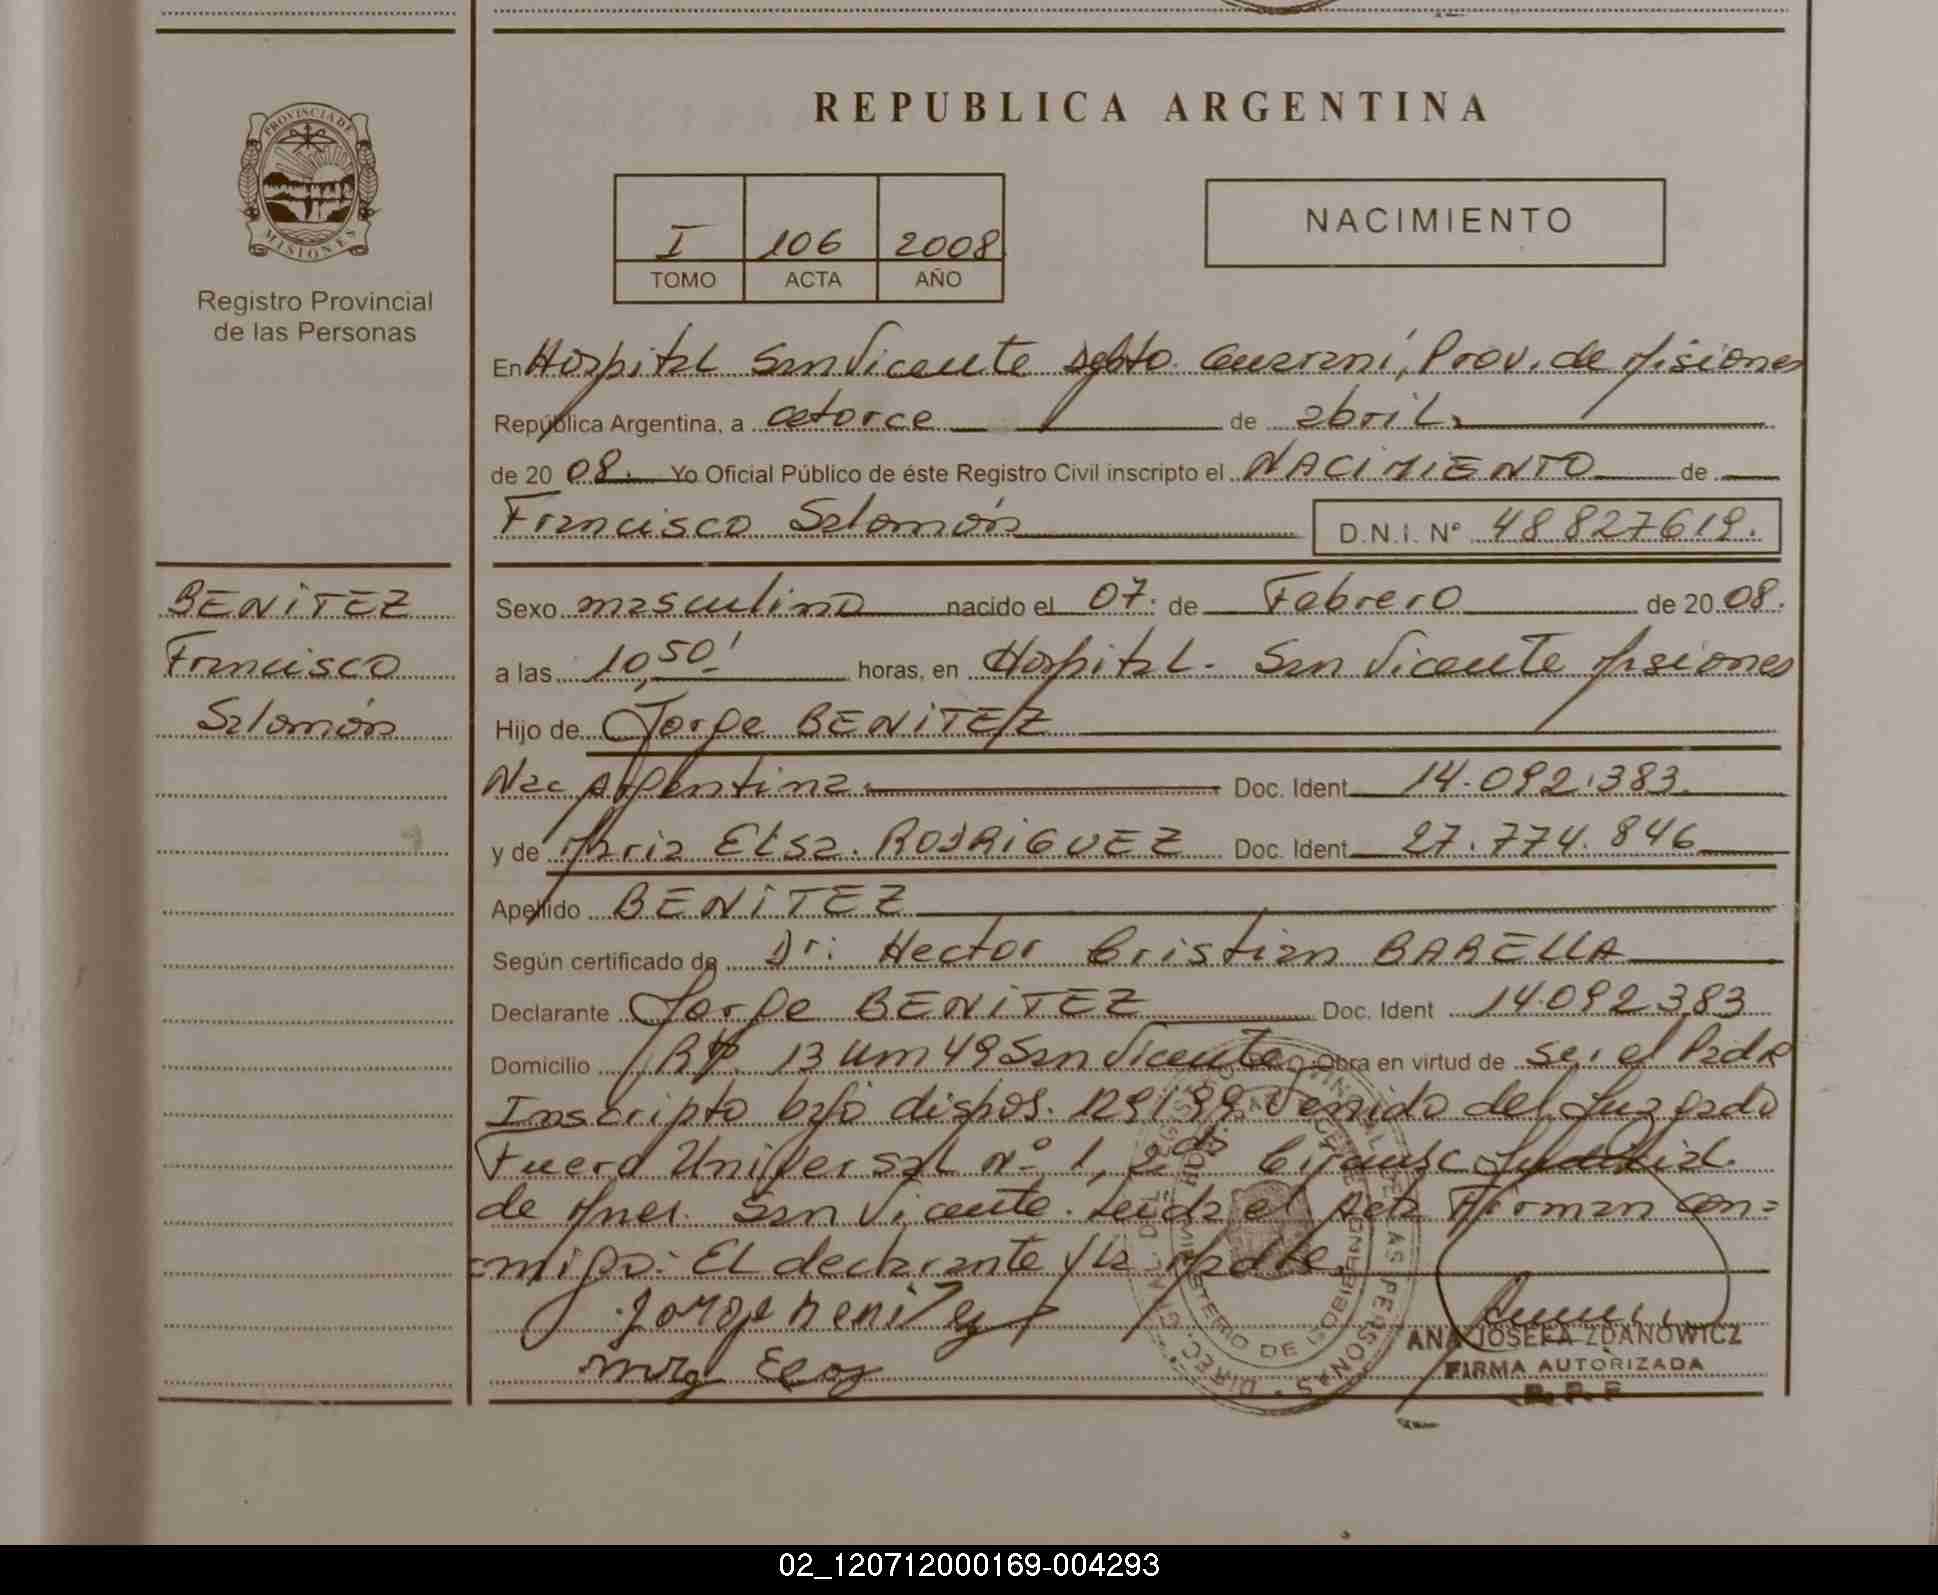 REPUBLICA ARGENTINA
PROVINCIA DE MISIONES
Registro Provincial
de las Personas
I 106 2008
TOMO ACTA AÑO
NACIMIENTO
En Hospital San Vicente Dpto. Guaraní, Prov. de Misiones
República Argentina, a catorce de abril
de 20 08. Yo Oficial Público de éste Registro Civil inscripto el NACIMIENTO de
Francisco Salomón D.N.I. Nº 48827619.
BENITEZ
Francisco
Salomón
Sexo masculino nacido el 07. de Febrero de 20 08.
a las 10,50' horas, en Hospital. San Vicente Misiones
Hijo de Jorge BENITEZ
Nac Argentina. Doc. Ident 14.092.383.
y de Maria Elsa. RODRIGUEZ Doc. Ident 27.774.846
Apellido BENITEZ
Según certificado de Dr: Hector Cristian BARELLA
Declarante Jorge BENITEZ Doc. Ident 14.092.383
Domicilio RP. 13 Km 49 San Vicente Obra en virtud de ser el Padre
Inscripto bajo dispos. 129/99. Venido del Juzgado
Fuero Universal nº 1, 2da Circunsc Judicial.
de Mnes. San Vicente. Leida el Acta Firman con=
=migo: El declarante y la Madre.
Jorge Benitez
ANA JOSEFA ZDANOWICZ
FIRMA AUTORIZADA
R. P. P
MINISTERIO DE GOBIERNO
02_120712000169-004293